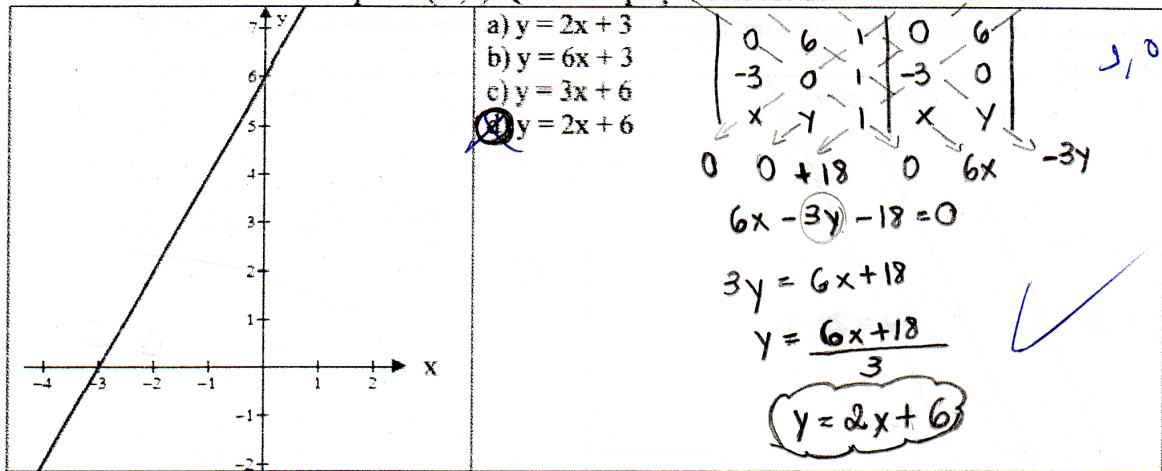 y
7
6
5
4
3
2
1
-4 -3 -2 -1 1 2 X
-1
-2
a) y = 2x + 3
b) y = 6x + 3
c) y = 3x + 6
d) y = 2x + 6
0 6 1 0 6
-3 0 1 -3 0
x y 1 x y
0 0 +18 0 6x -3y
6x - 3y - 18 = 0
3y = 6x + 18
y = 6x + 18
3
y = 2x + 6
1,0